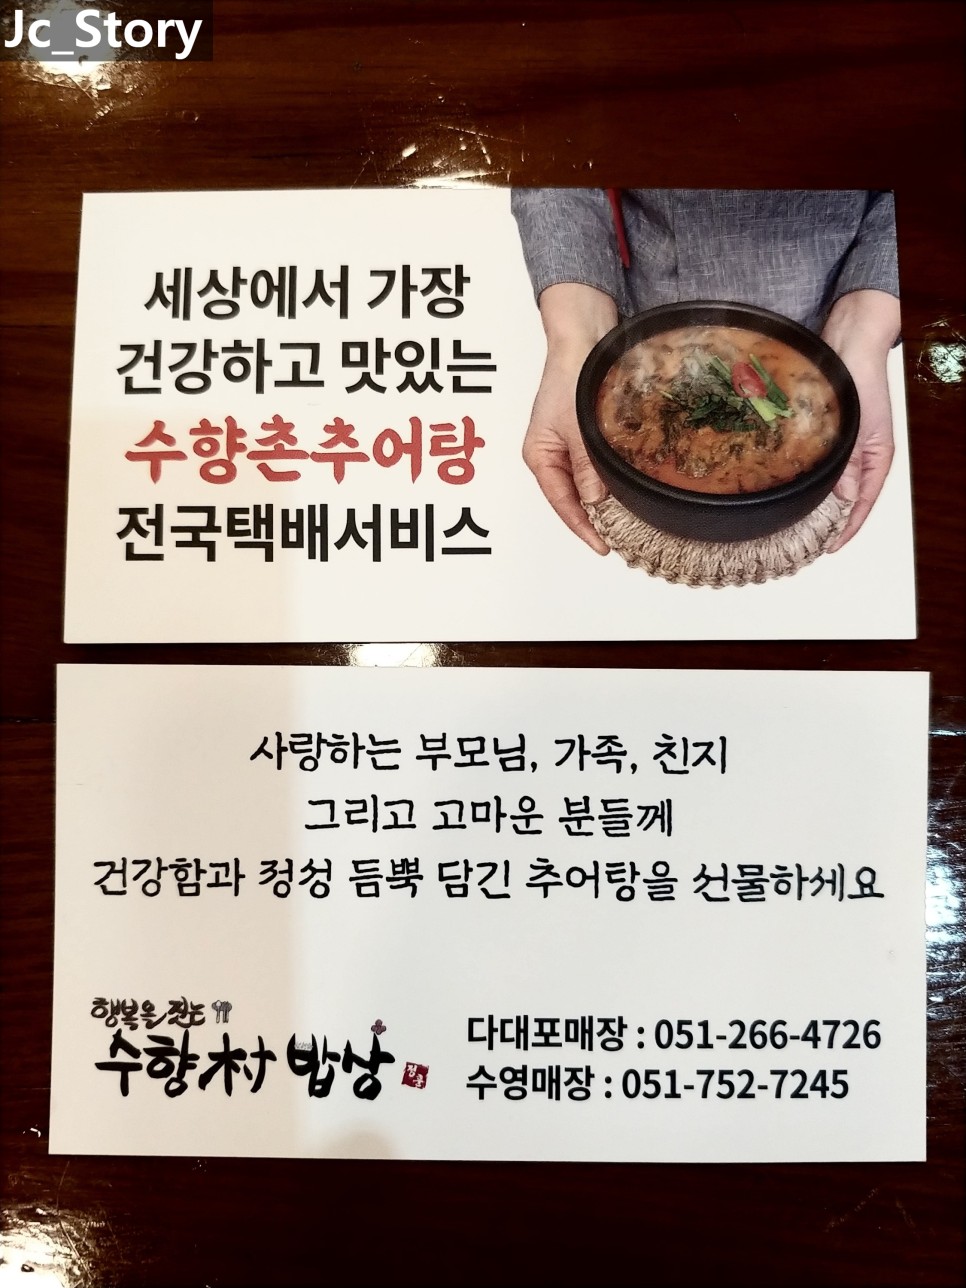 Jc_Story
세상에서 가장
건강하고 맛있는
수향촌추어탕
전국택배서비스
사랑하는 부모님, 가족, 친지
그리고 고마운 분들께
건강함과 정성 듬뿍 담긴 추어탕을 선물하세요
행복을 전하는
수향村 밥상
다대포매장 : 051-266-4726
수영매장 : 051-752-7245